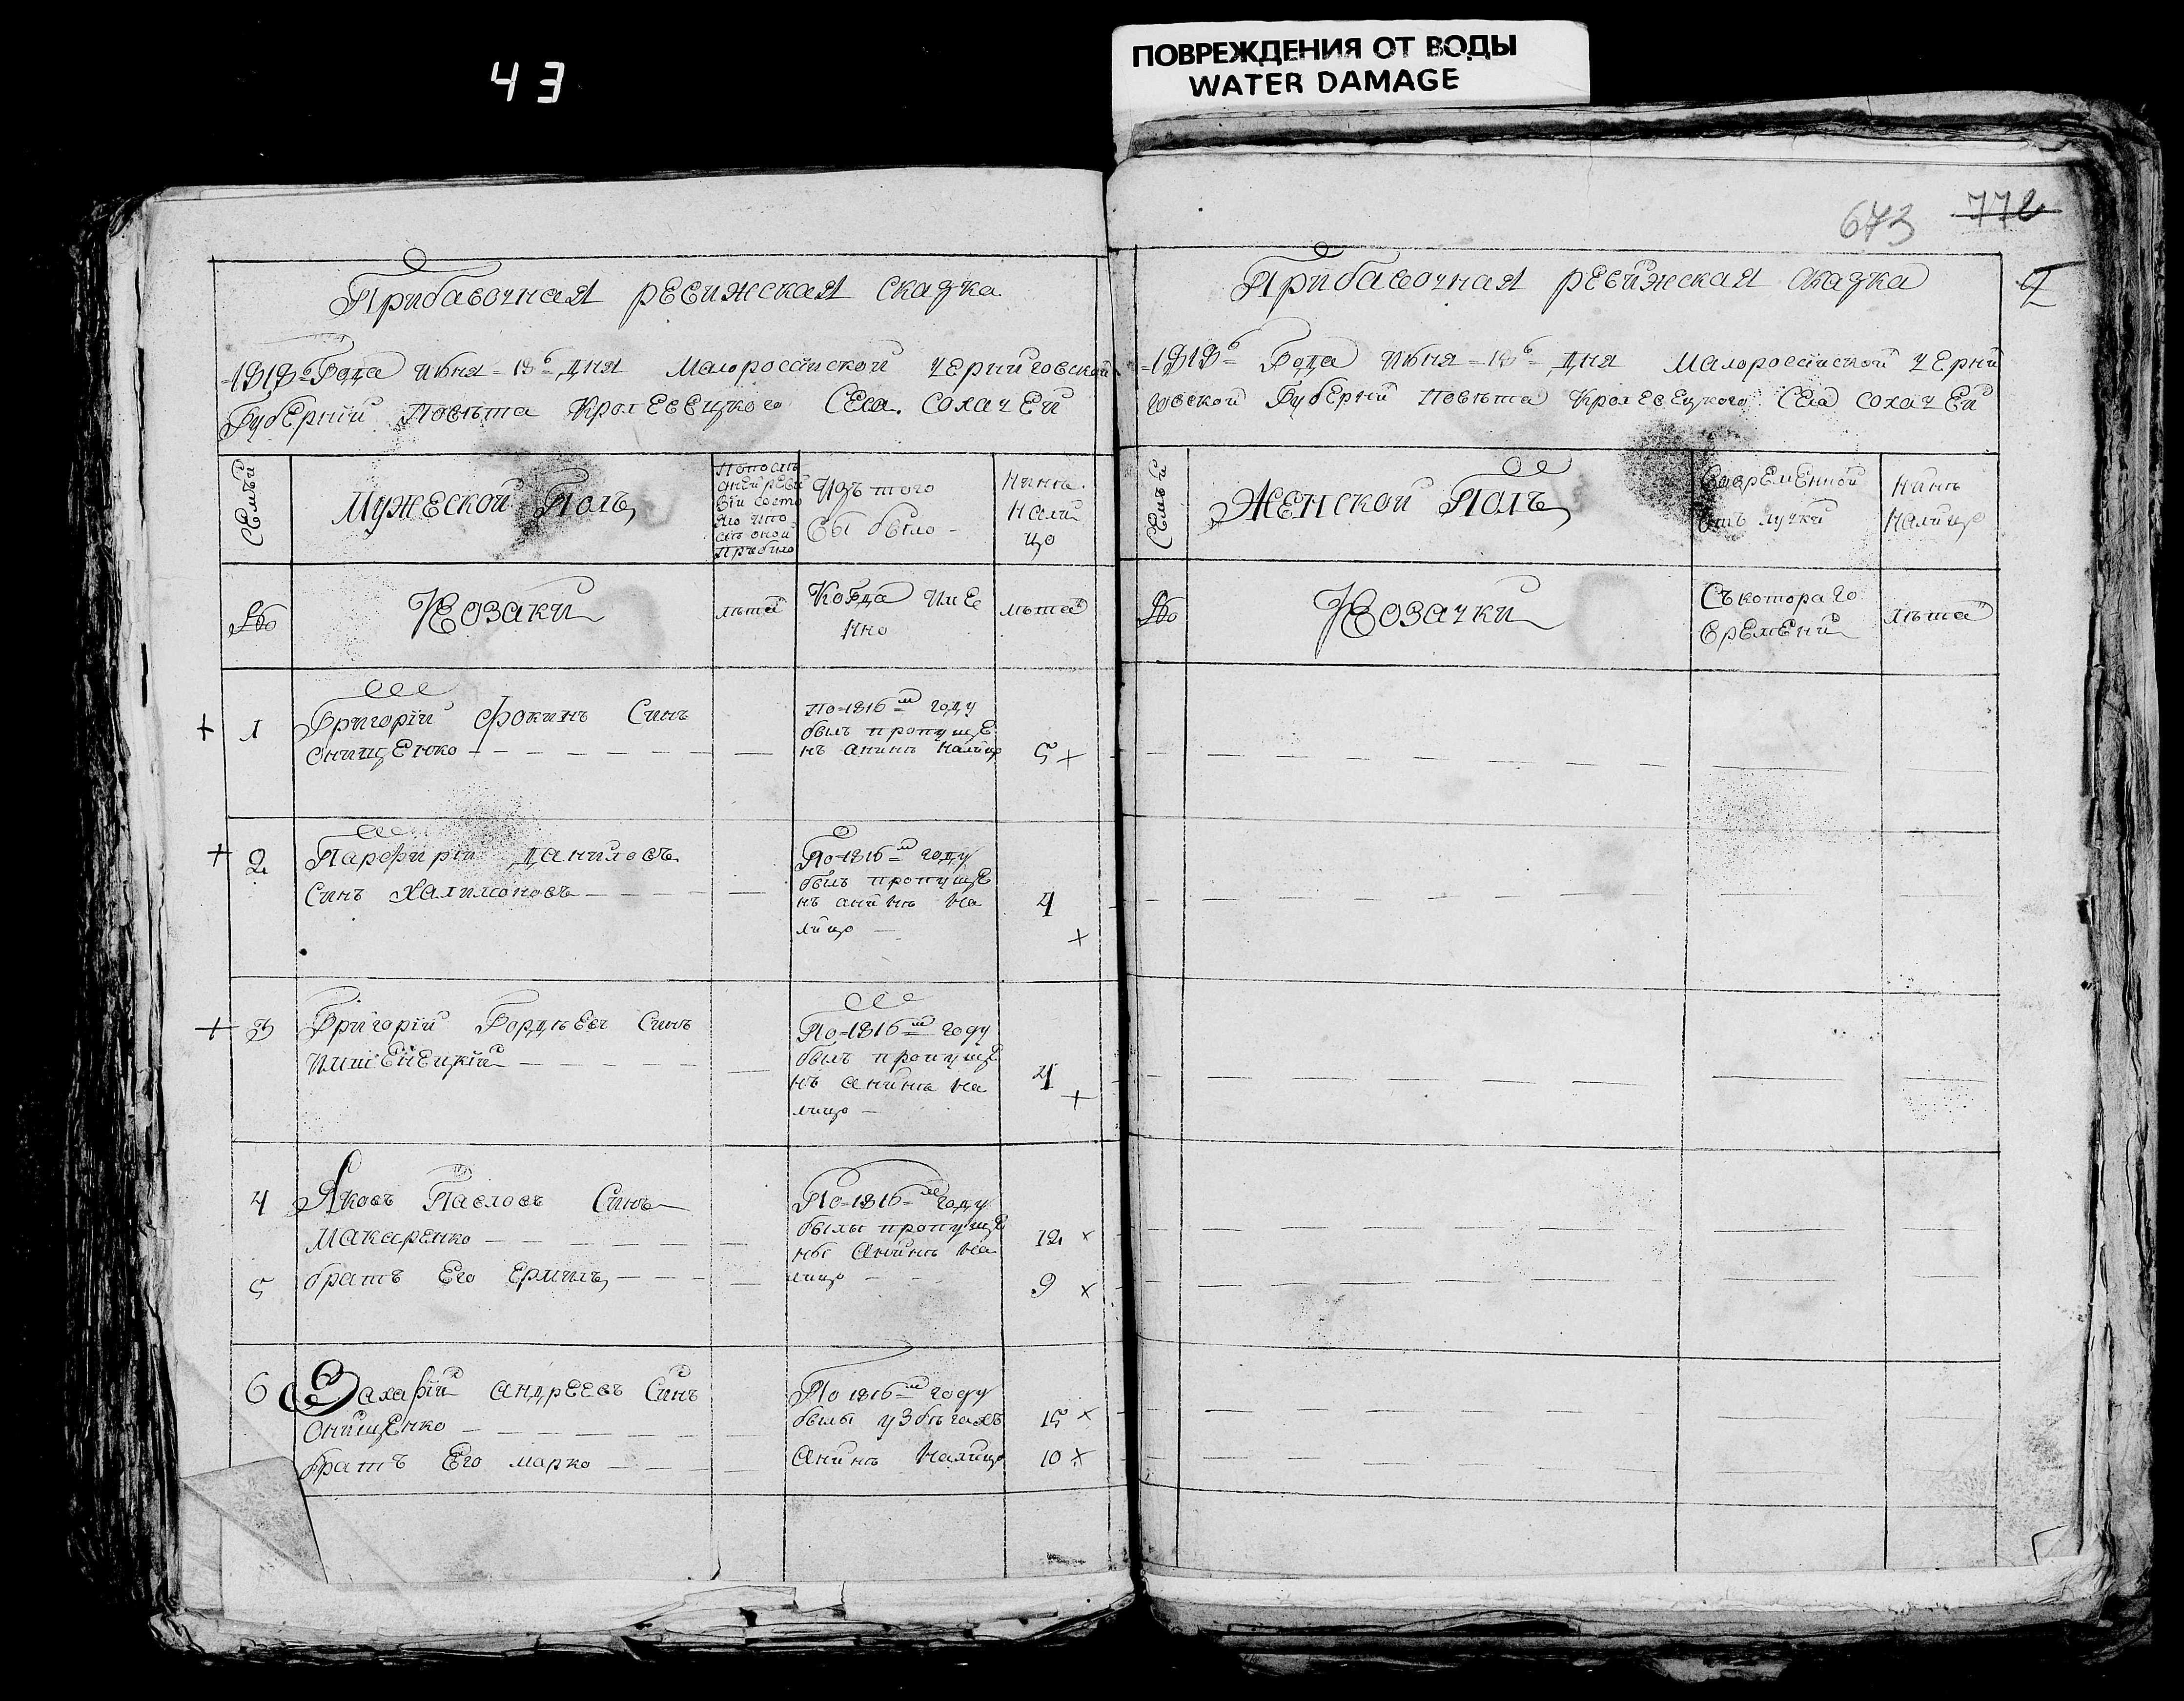 43
ПОВРЕЖДЕНИЯ ОТ ВОДЫ
WATER DAMAGE
Прибавочная ревижская сказка
1818го Года июня 18го дня Малороссийской Черниговской
Губернии Повѣта Кролевецкого Села Сохачей
Семьи
Мужеской Полъ
Изъ того
вы было
Нинѣ
Нали
цо
№
Козаки
лѣта
Когда име
нно
лѣта
+ 1
Григорій Фокинъ Синъ
Онищенко
По 1816м году
былъ пропуще
нъ анинѣ налицо
5 +
+ 2
Парфирій Даниловъ
Синъ Халимоновъ
По 1816м году
былъ пропуще
нъ анинѣ на
лицо
4
+
+ 3
Григорій Гордѣевъ Синъ
По 1816м году
былъ пропуще
нъ анинѣ на
лицо
4
+
4
Яковъ Павловъ Синъ
Макаренко
5
братъ Его Ермилъ
По 1816м году
былы пропуще
ны анинѣ на
лицо
12 ×
9 ×
6
Захарій Андреевъ Синъ
Онищенко
братъ Его Марко
По 1816м году
былы у збѣгахъ
анинѣ налицо
15 ×
10 ×
673 772
2
Прибавочная ревижская сказка
1818го Года июня 18го дня Малороссийской Черни
говской Губернии Повѣта Кролевецкого Села Сохачей
Семьи
Женской Полъ
Вовременной
отлучки
Нинѣ
Налицо
№
Козачки
Съ котораго
времени
лѣта